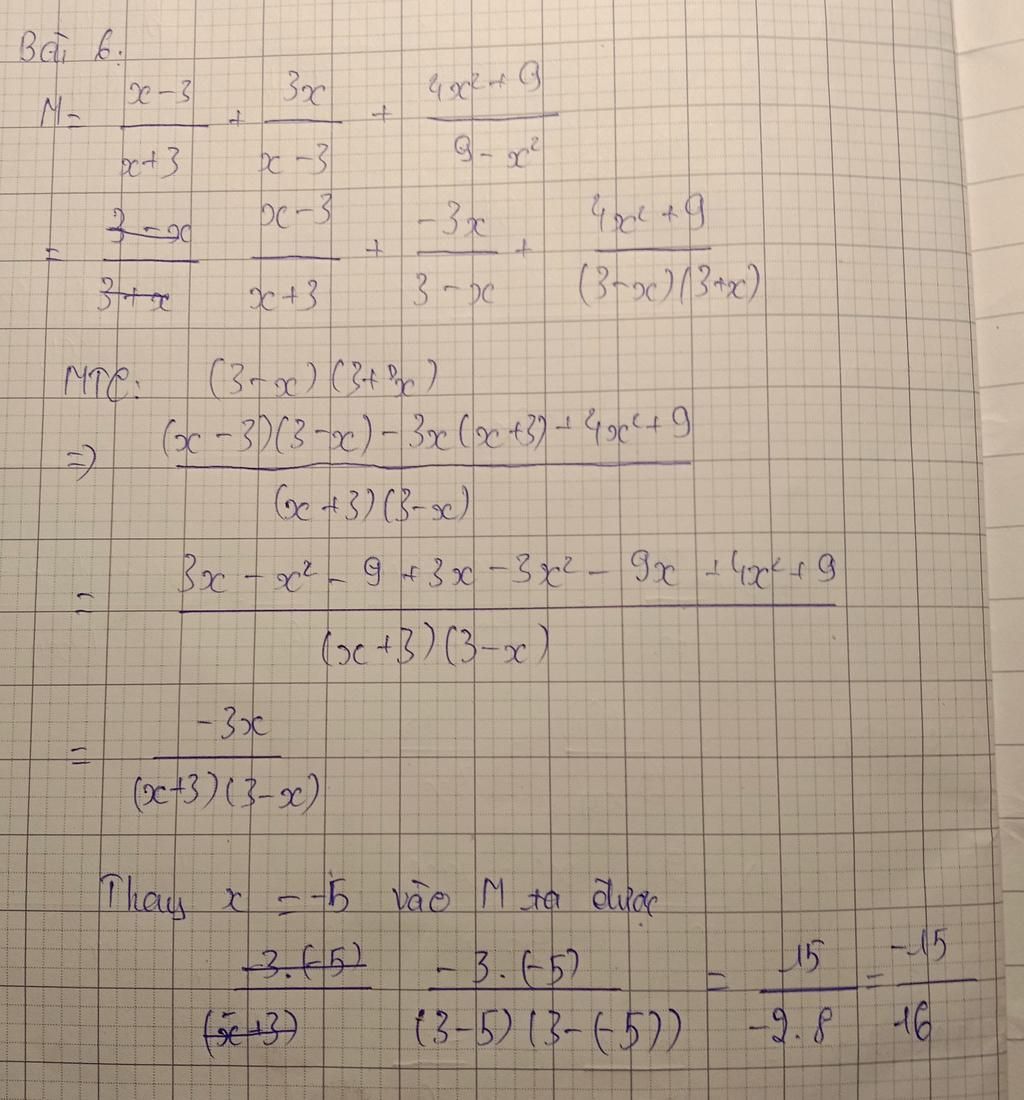 Bài 6:
M = \frac{x-3}{x+3} + \frac{3x}{x-3} + \frac{4x²+9}{9-x²}
= ~~\frac{3-x}{3+x}~~ \frac{x-3}{x+3} + \frac{-3x}{3-x} + \frac{4x²+9}{(3-x)(3+x)}
MTC: (3-x)(3+x)
=> \frac{(x-3)(3-x)-3x(x+3)+4x²+9}{(x+3)(3-x)}
= \frac{3x-x²-9+3x-3x²-9x+4x²+9}{(x+3)(3-x)}
= \frac{-3x}{(x+3)(3-x)}
Thay x = -5 vào M ta được
~~\frac{-3.(-5)}{(x+3)}~~ \frac{-3.(-5)}{(3-5)(3-(-5))} = \frac{15}{-2.8} = \frac{-15}{16}